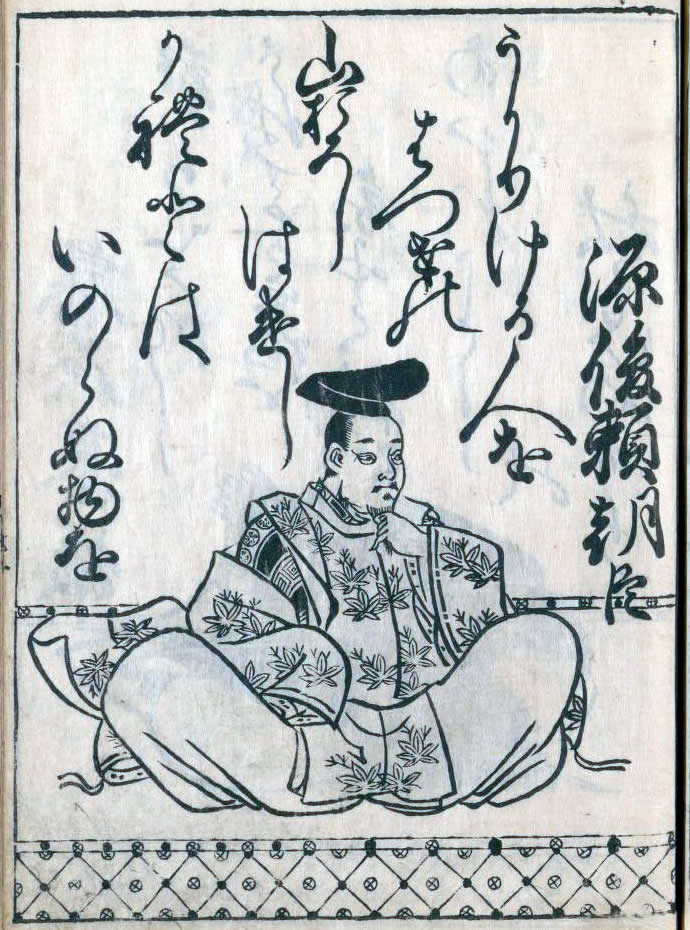 源俊頼朝臣
うかりける人を
はつせの
山おろし
はけし
かれとは
いのらぬ物を